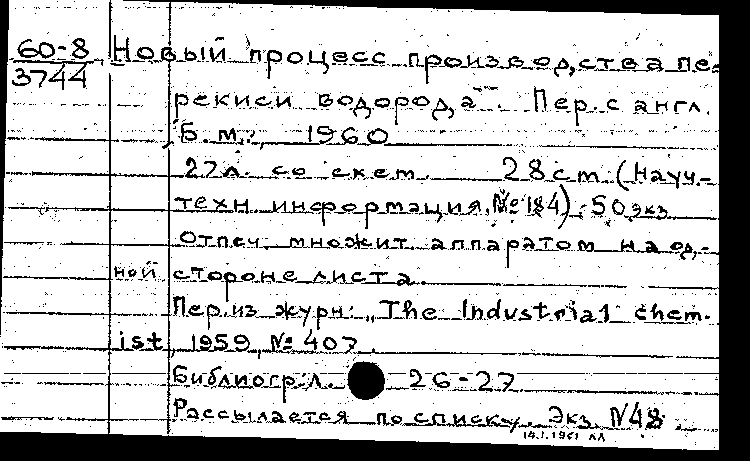 60-8
3744
Новый процесс производства пе-
рекиси водорода. Пер. с англ.
Б.м., 1960
27л. со схем. 28 cm. (Науч.-
техн. информация, №184). 50 экз.
Отпеч. множит. аппаратом на од-
ной стороне листа.
Пер. из журн: "The Industrial chem-
ist, 1959, № 407.
Библиогр: л. 26-27
Рассылается по списку. Экз. N48.
14.I.1961 ЛЛ